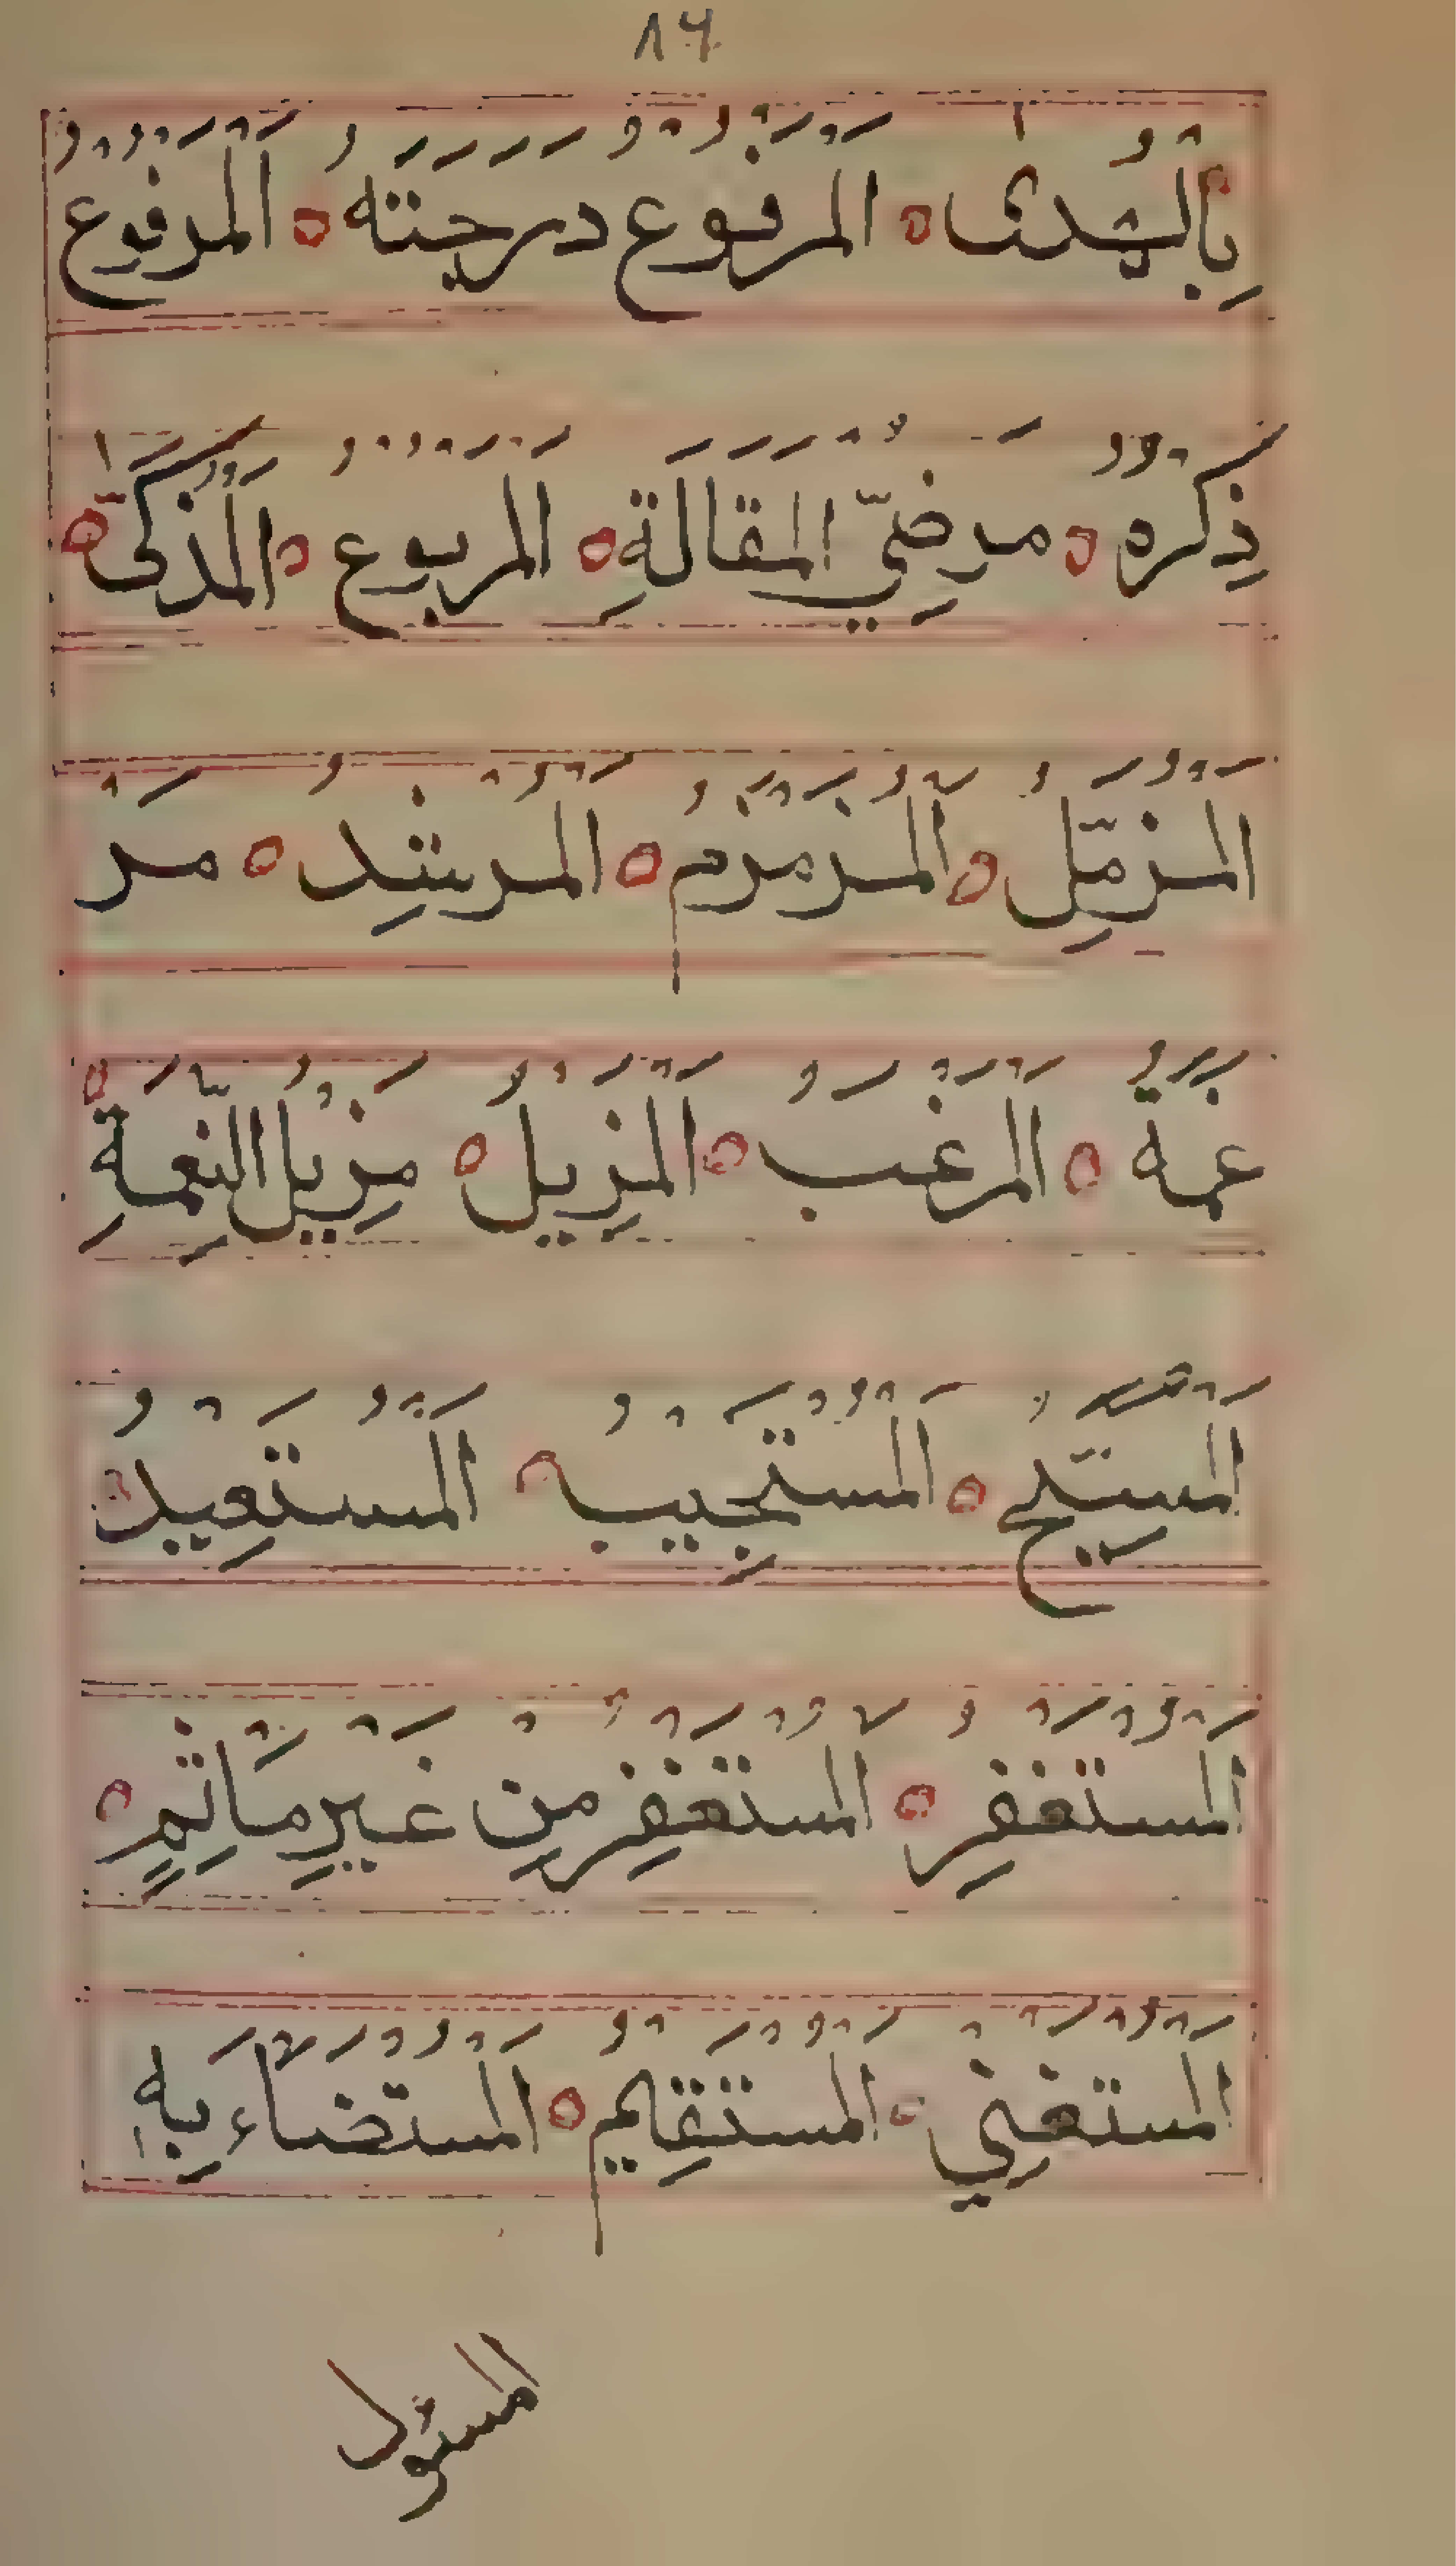 ٨٦
بِالبُشْرٰى ۝ اَلْمَرْفُوعُ دَرَجَتُهُ ۝ اَلْمَرْفُوعُ
ذِكْرُهُ ۝ مَرضِيُّ المَقَالَةِ ۝ اَلْمَرْبُوعُ ۝ اَلمُذَكّٰى ۝
اَلْمُزَّمِّلُ ۝ اَلْمُزَمْزَمُ ۝ اَلْمُرْشِدُ ۝ مَرْ
غَمَةٌ ۝ اَلْمَرْغَبُ ۝ اَلْمُزِيلُ ۝ مُزِيلُ النِّعْمَةِ ۝
اَلْمُسَبِّحُ ۝ اَلْمُسْتَجِيبُ ۝ اَلْمُسْتَعِيدُ ۝
اَلْمُسْتَغْفِرُ ۝ المُسْتَغْفِرُ مِنْ غَيْرِ مَاْثَمٍ ۝
اَلْمُسْتَغْنِيْ ۝ اَلمُسْتَقِيمُ ۝ اَلْمُسْتَضَاءُ بِهٖ
المسئول